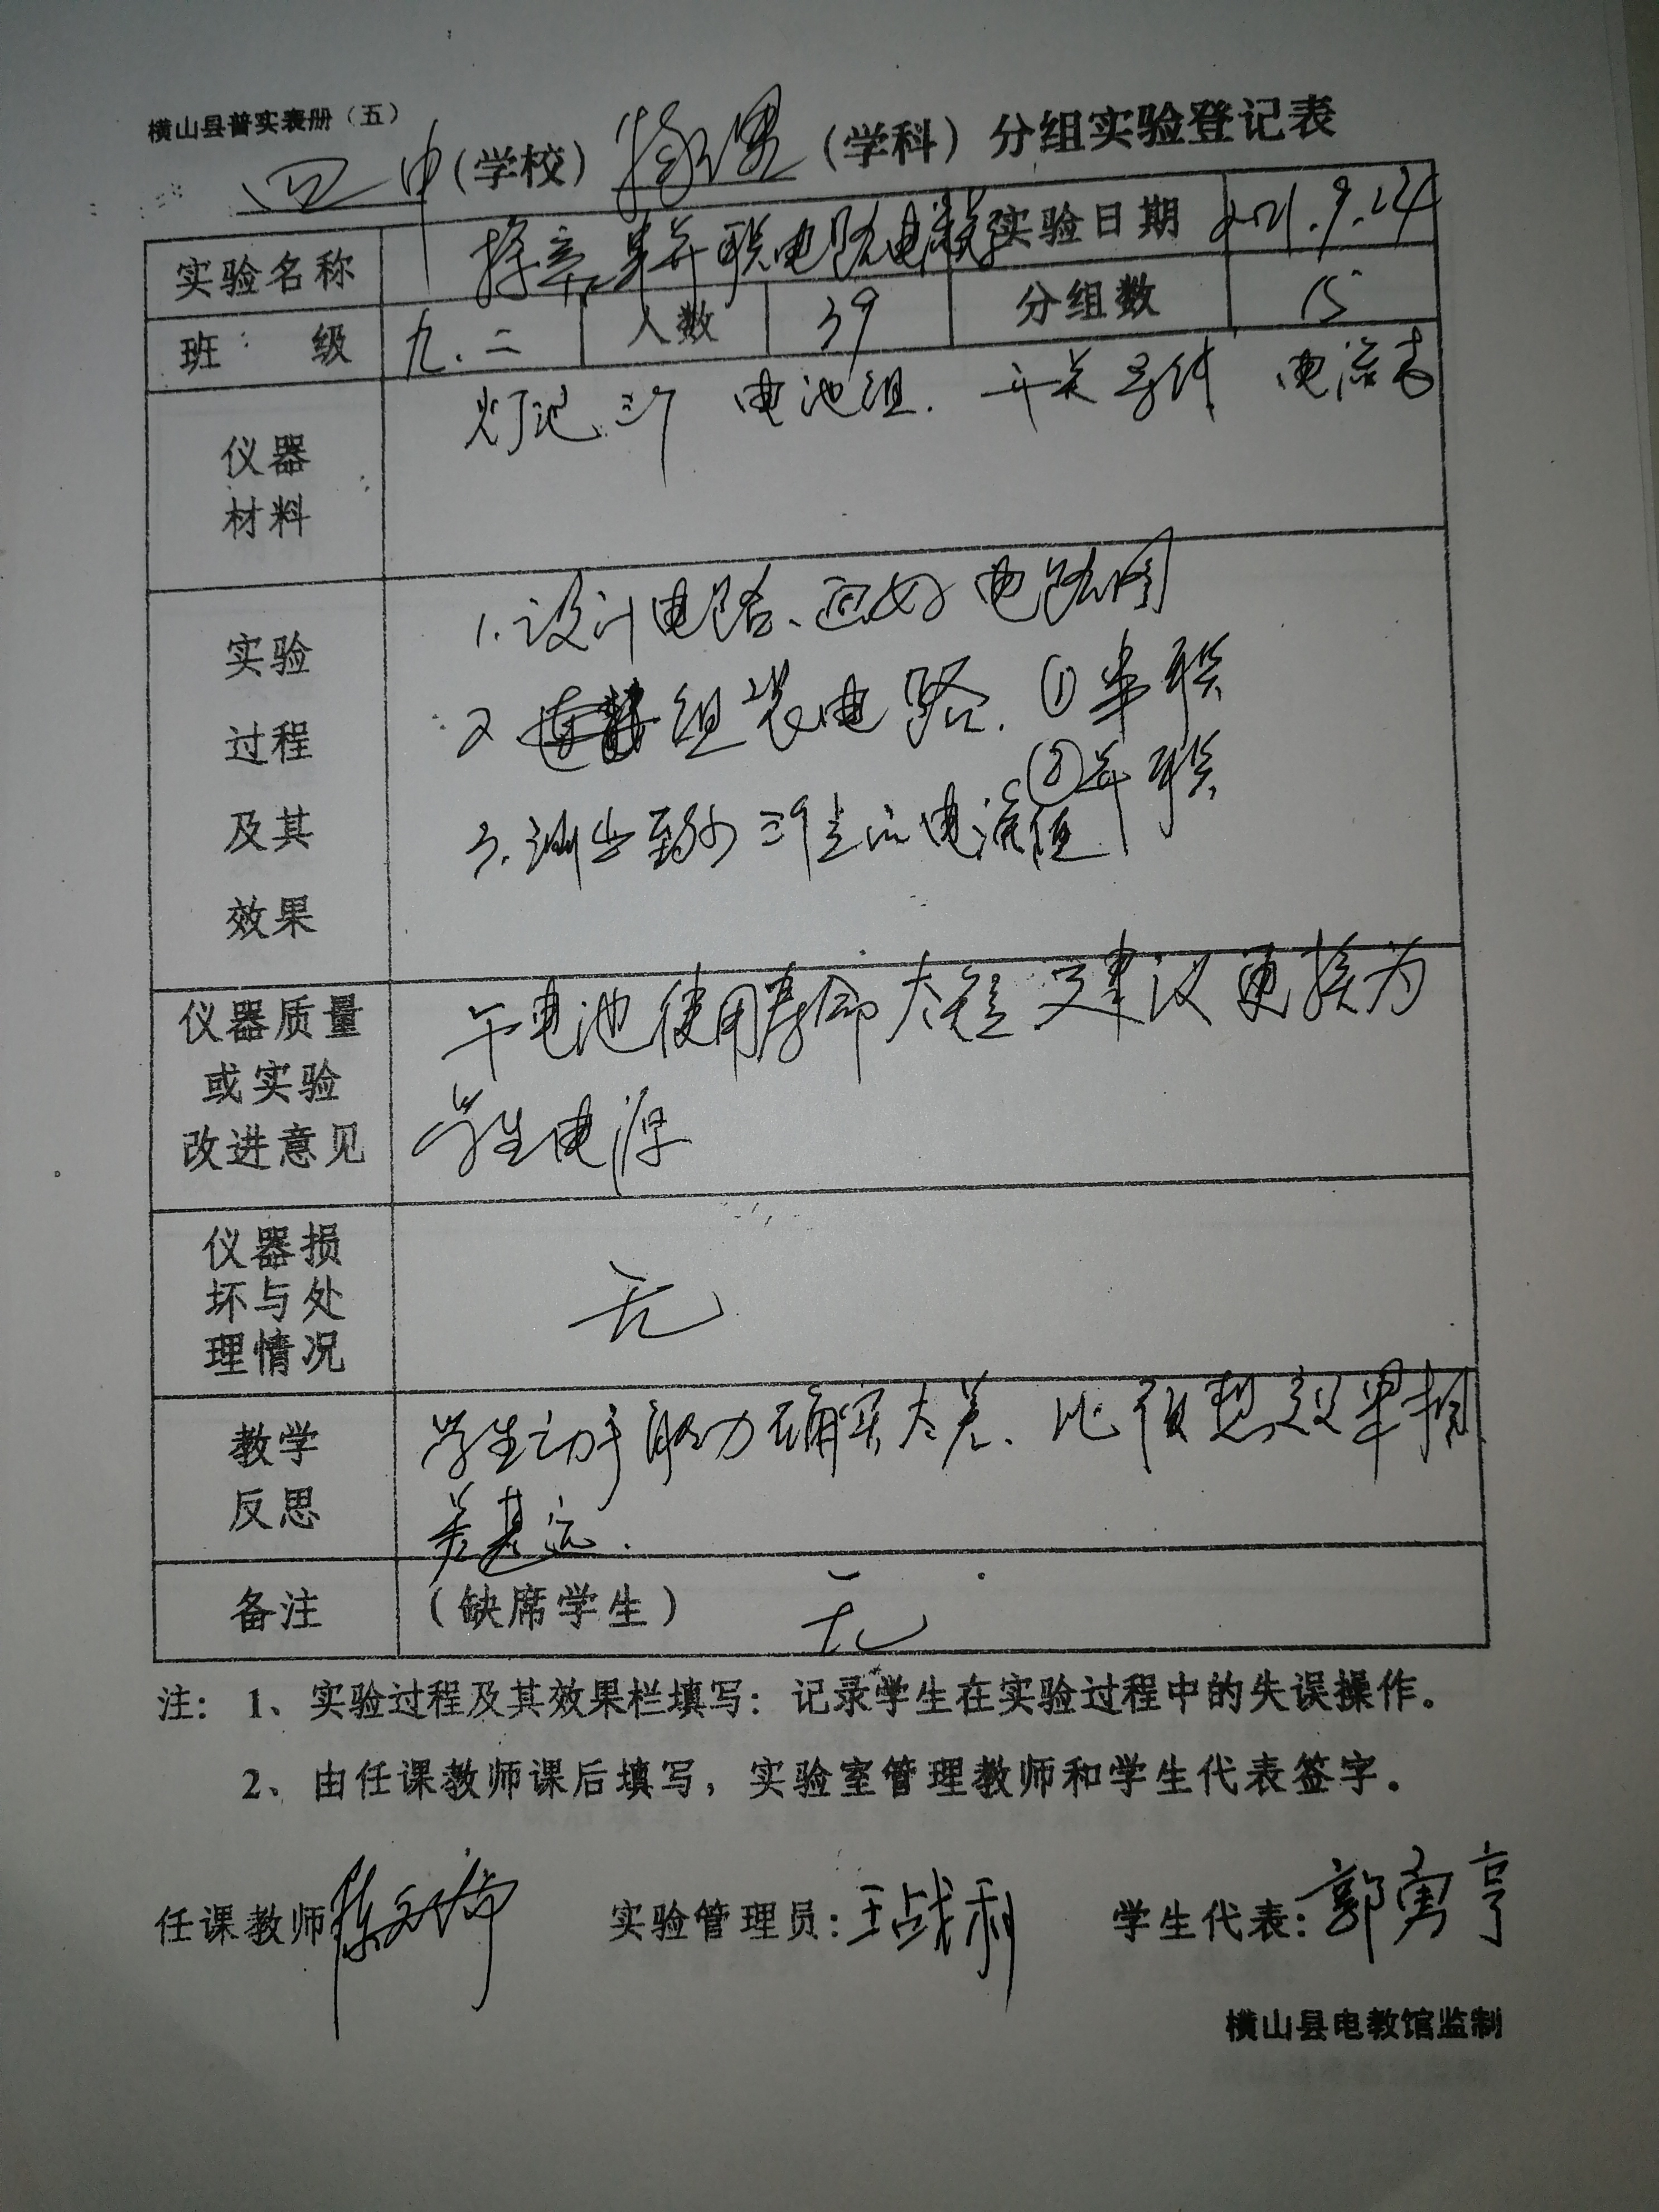 横山县普实表册（五）
四中（学校）物理（学科）分组实验登记表
实验名称 探究串并联电路电流 实验日期 2021.9.24
班级 九.二 人数 39 分组数 15
仪器材料 灯泡三个 电池组. 开关导线 电流表
实验过程及其效果
1.设计电路、画好电路图
2 组装电路. ①串联
②并联
3.测出至少三个点的电流值
仪器质量或实验改进意见
干电池使用寿命太短 建议更换为
学生电源
仪器损坏与处理情况 无
教学反思
学生动手能力确实太差、比预想效果相
差甚远.
备注（缺席学生） 无
注：1、实验过程及其效果栏填写：记录学生在实验过程中的失误操作。
2、由任课教师课后填写，实验室管理教师和学生代表签字。
任课教师 实验管理员：王战利 学生代表：郭勇亨
横山县电教馆监制